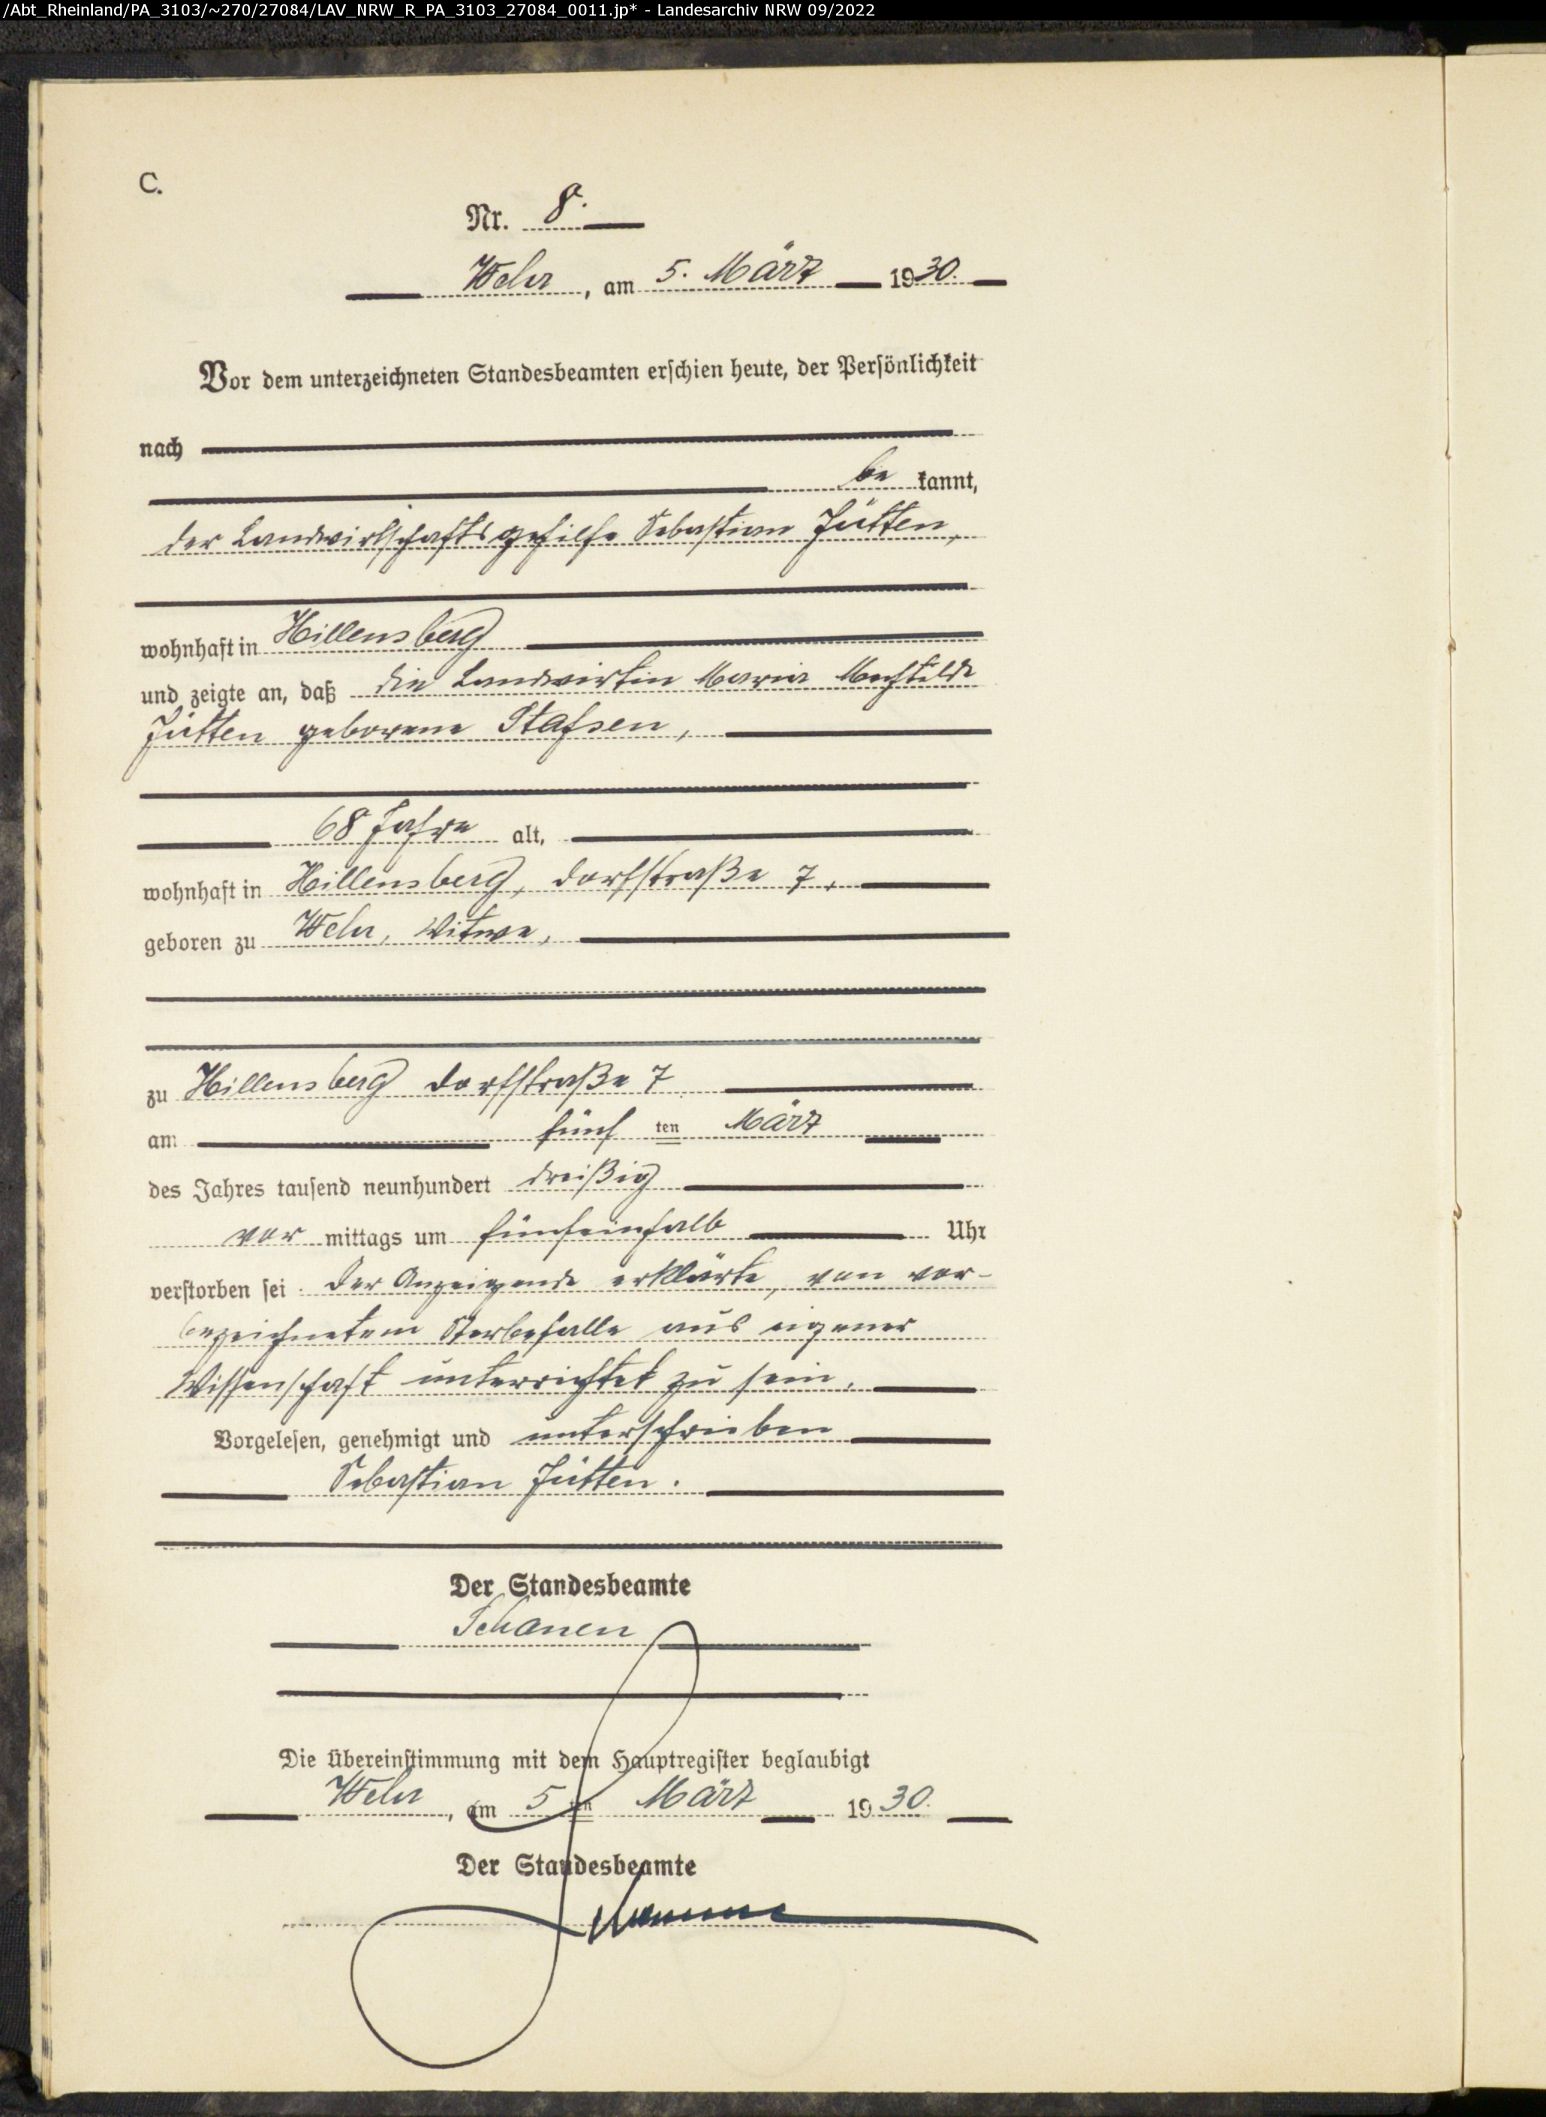 /Abt_Rheinland/PA_3103/~270/27084/LAV_NRW_R_PA_3103_27084_0011.jp* - Landesarchiv NRW 09/2022
C.
Nr. 8.
Wehr, am 5. März 1930.
Vor dem unterzeichneten Standesbeamten erschien heute, der Persönlichkeit
nach
be kannt,
der Landwirtschaftsgehilfe Sebastian Jütten,
wohnhaft in Hillensberg
und zeigte an, daß die Landwirtin Maria Mechtilde
Jütten geborene Stassen,
68 Jahre alt,
wohnhaft in Hillensberg, Dorfstraße 7,
geboren zu Wehr, Witwe,
zu Hillensberg Dorfstraße 7
am fünf ten März
des Jahres tausend neunhundert dreißig
vor mittags um fünfeinhalb Uhr
verstorben sei. Der Anzeigende erklärte, von vor-
bezeichnetem Sterbefalle aus eigener
Wissenschaft unterrichtet zu sein.
Vorgelesen, genehmigt und unterschrieben
Sebastian Jütten.
Der Standesbeamte
Schanen
Die Übereinstimmung mit dem Hauptregister beglaubigt
Wehr, am 5 ten März 1930.
Der Standesbeamte